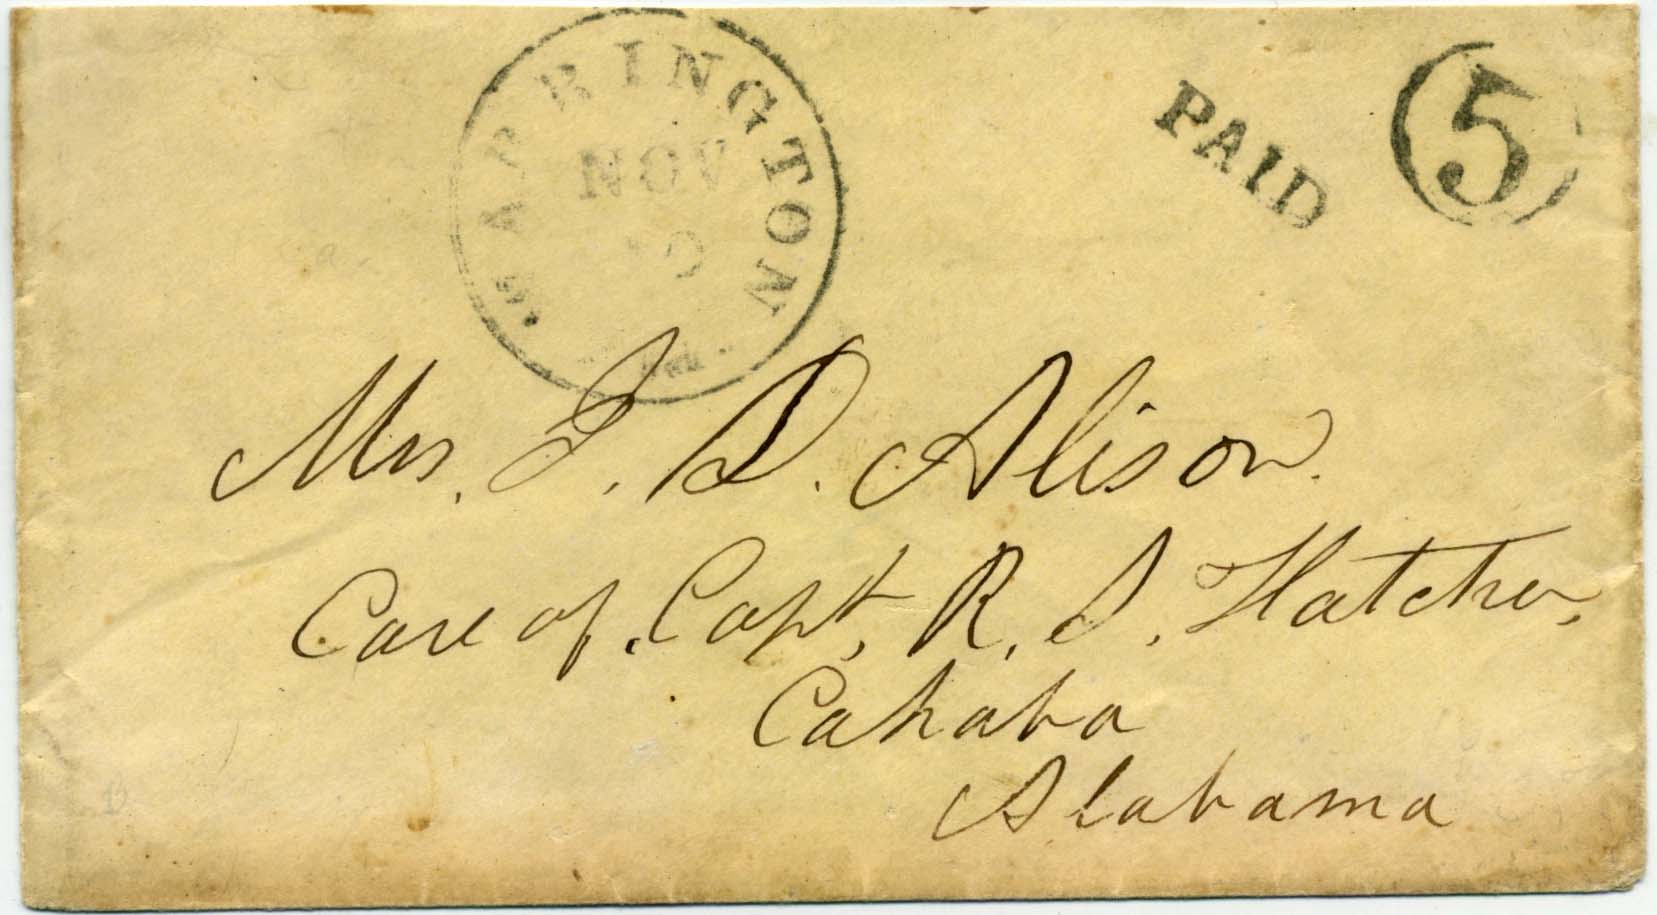 WARRINGTON
NOV
PAID
5
Mrs. J. D. Alison.
Care of Capt. R. S. Hatcher,
Cahaba
Alabama